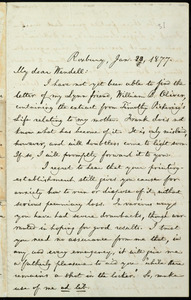 Roxbury, Jan. 1877.
My dear Wendell:
I have not yet been able to find the
letter of my Lynn friend, William B. Oliver,
containing the extract from Timothy Pickering's
Life relating to my mother. Frank does not
know what has become of it. It is only mislaid,
however, and will doubtless come to light soon.
If so, I will promptly forward it to you.
I regret to learn that your printing
establishment still gives you cause for
anxiety how to run or dispose of it without
serious pecuniary loss. In various ways
you have had some drawbacks, though
in hoping for good results. I trust
you need no assurance from me that, in
any emergency, it will give me
pleasure to aid you while there
remains "a shot in the locker." So, make
use of me ad. lib.